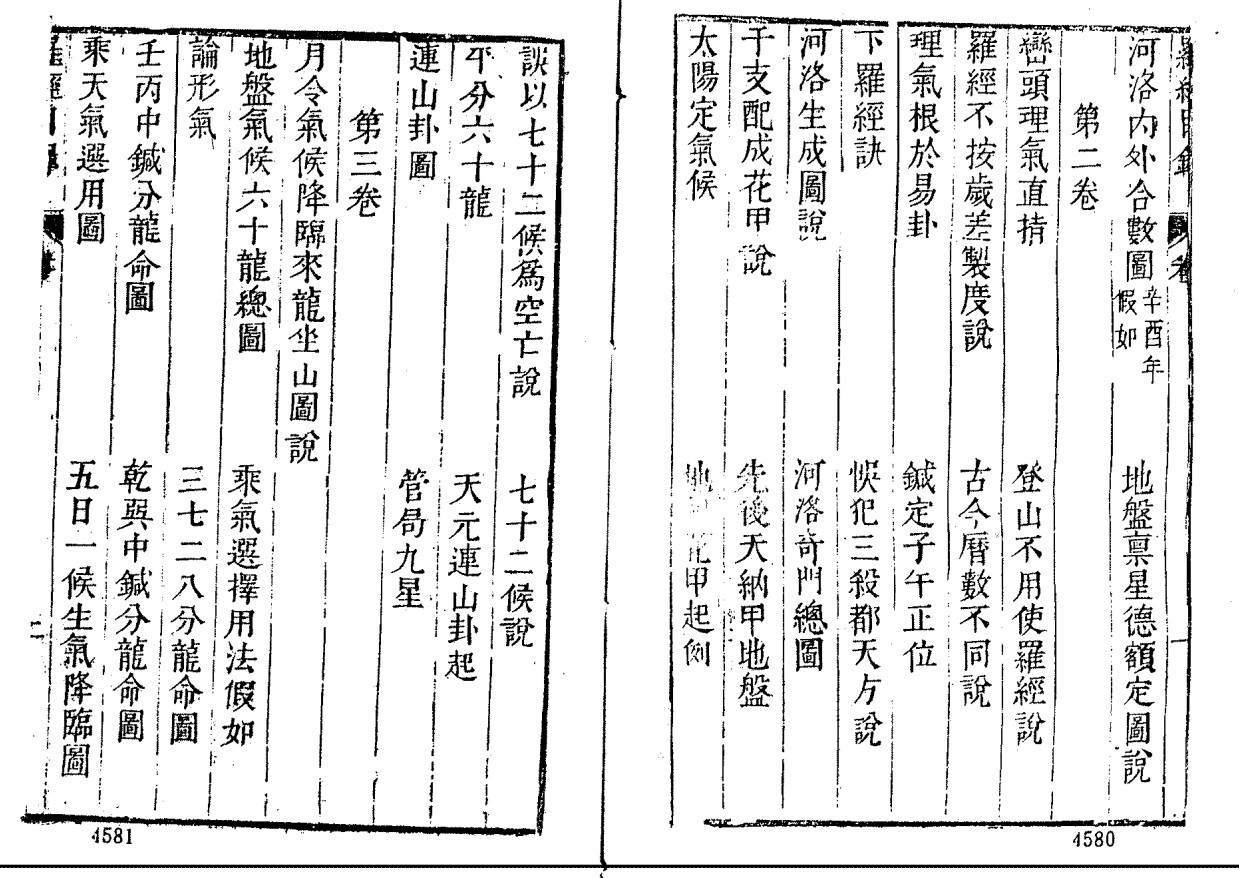 河洛內外合數圖 辛酉年假如 地盤禀星德額定圖說
第二卷
巒頭理氣直指 登山不用使羅經說
羅經不按歲差製度說 古今曆數不同說
理氣根於易卦 鍼定子午正位
下羅經訣 悞犯三殺都天方說
河洛生成圖說 河洛奇門總圖
干支配成花甲說 先後天納甲地盤
太陽定氣候 地 花甲起例
4580
誤以七十二候為空亡說 七十二候說
平分六十龍 天元連山卦起
連山卦圖 管局九星
第三卷
月令氣候降臨來龍坐山圖說
地盤氣候六十龍總圖 乘氣選擇用法假如
論形氣 三七二八分龍命圖
壬丙中鍼分龍命圖 乾巽中鍼分龍命圖
乘天氣選用圖 五日一候生氣降臨圖
二
4581